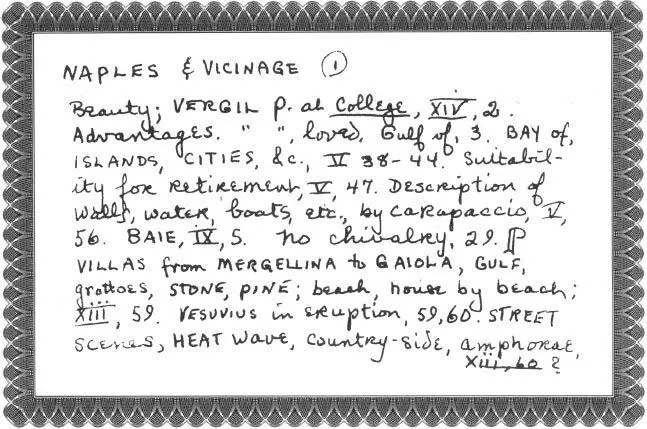 NAPLES & VICINAGE ①
Beauty; VERGIL P. at College, XIV, 2.
Advantages. " ", loved, Gulf of, 3. BAY of,
ISLANDS, CITIES, &c., V 38-44. Suitabil-
ity for retirement, V, 47. Description of
walls, water, boats, etc., by carapaccio, V,
56. BAIE, IX, 5. no chivalry, 29. ¶
VILLAS from MERGELLINA to GAIOLA, GULF,
grottoes, STONE, PINE; beach, house by beach;
XIII, 59. VESUVIUS in eruption, 59,60. STREET
Scenes, HEAT WAVE, country-side, amphorae,
XIII, 60 ?